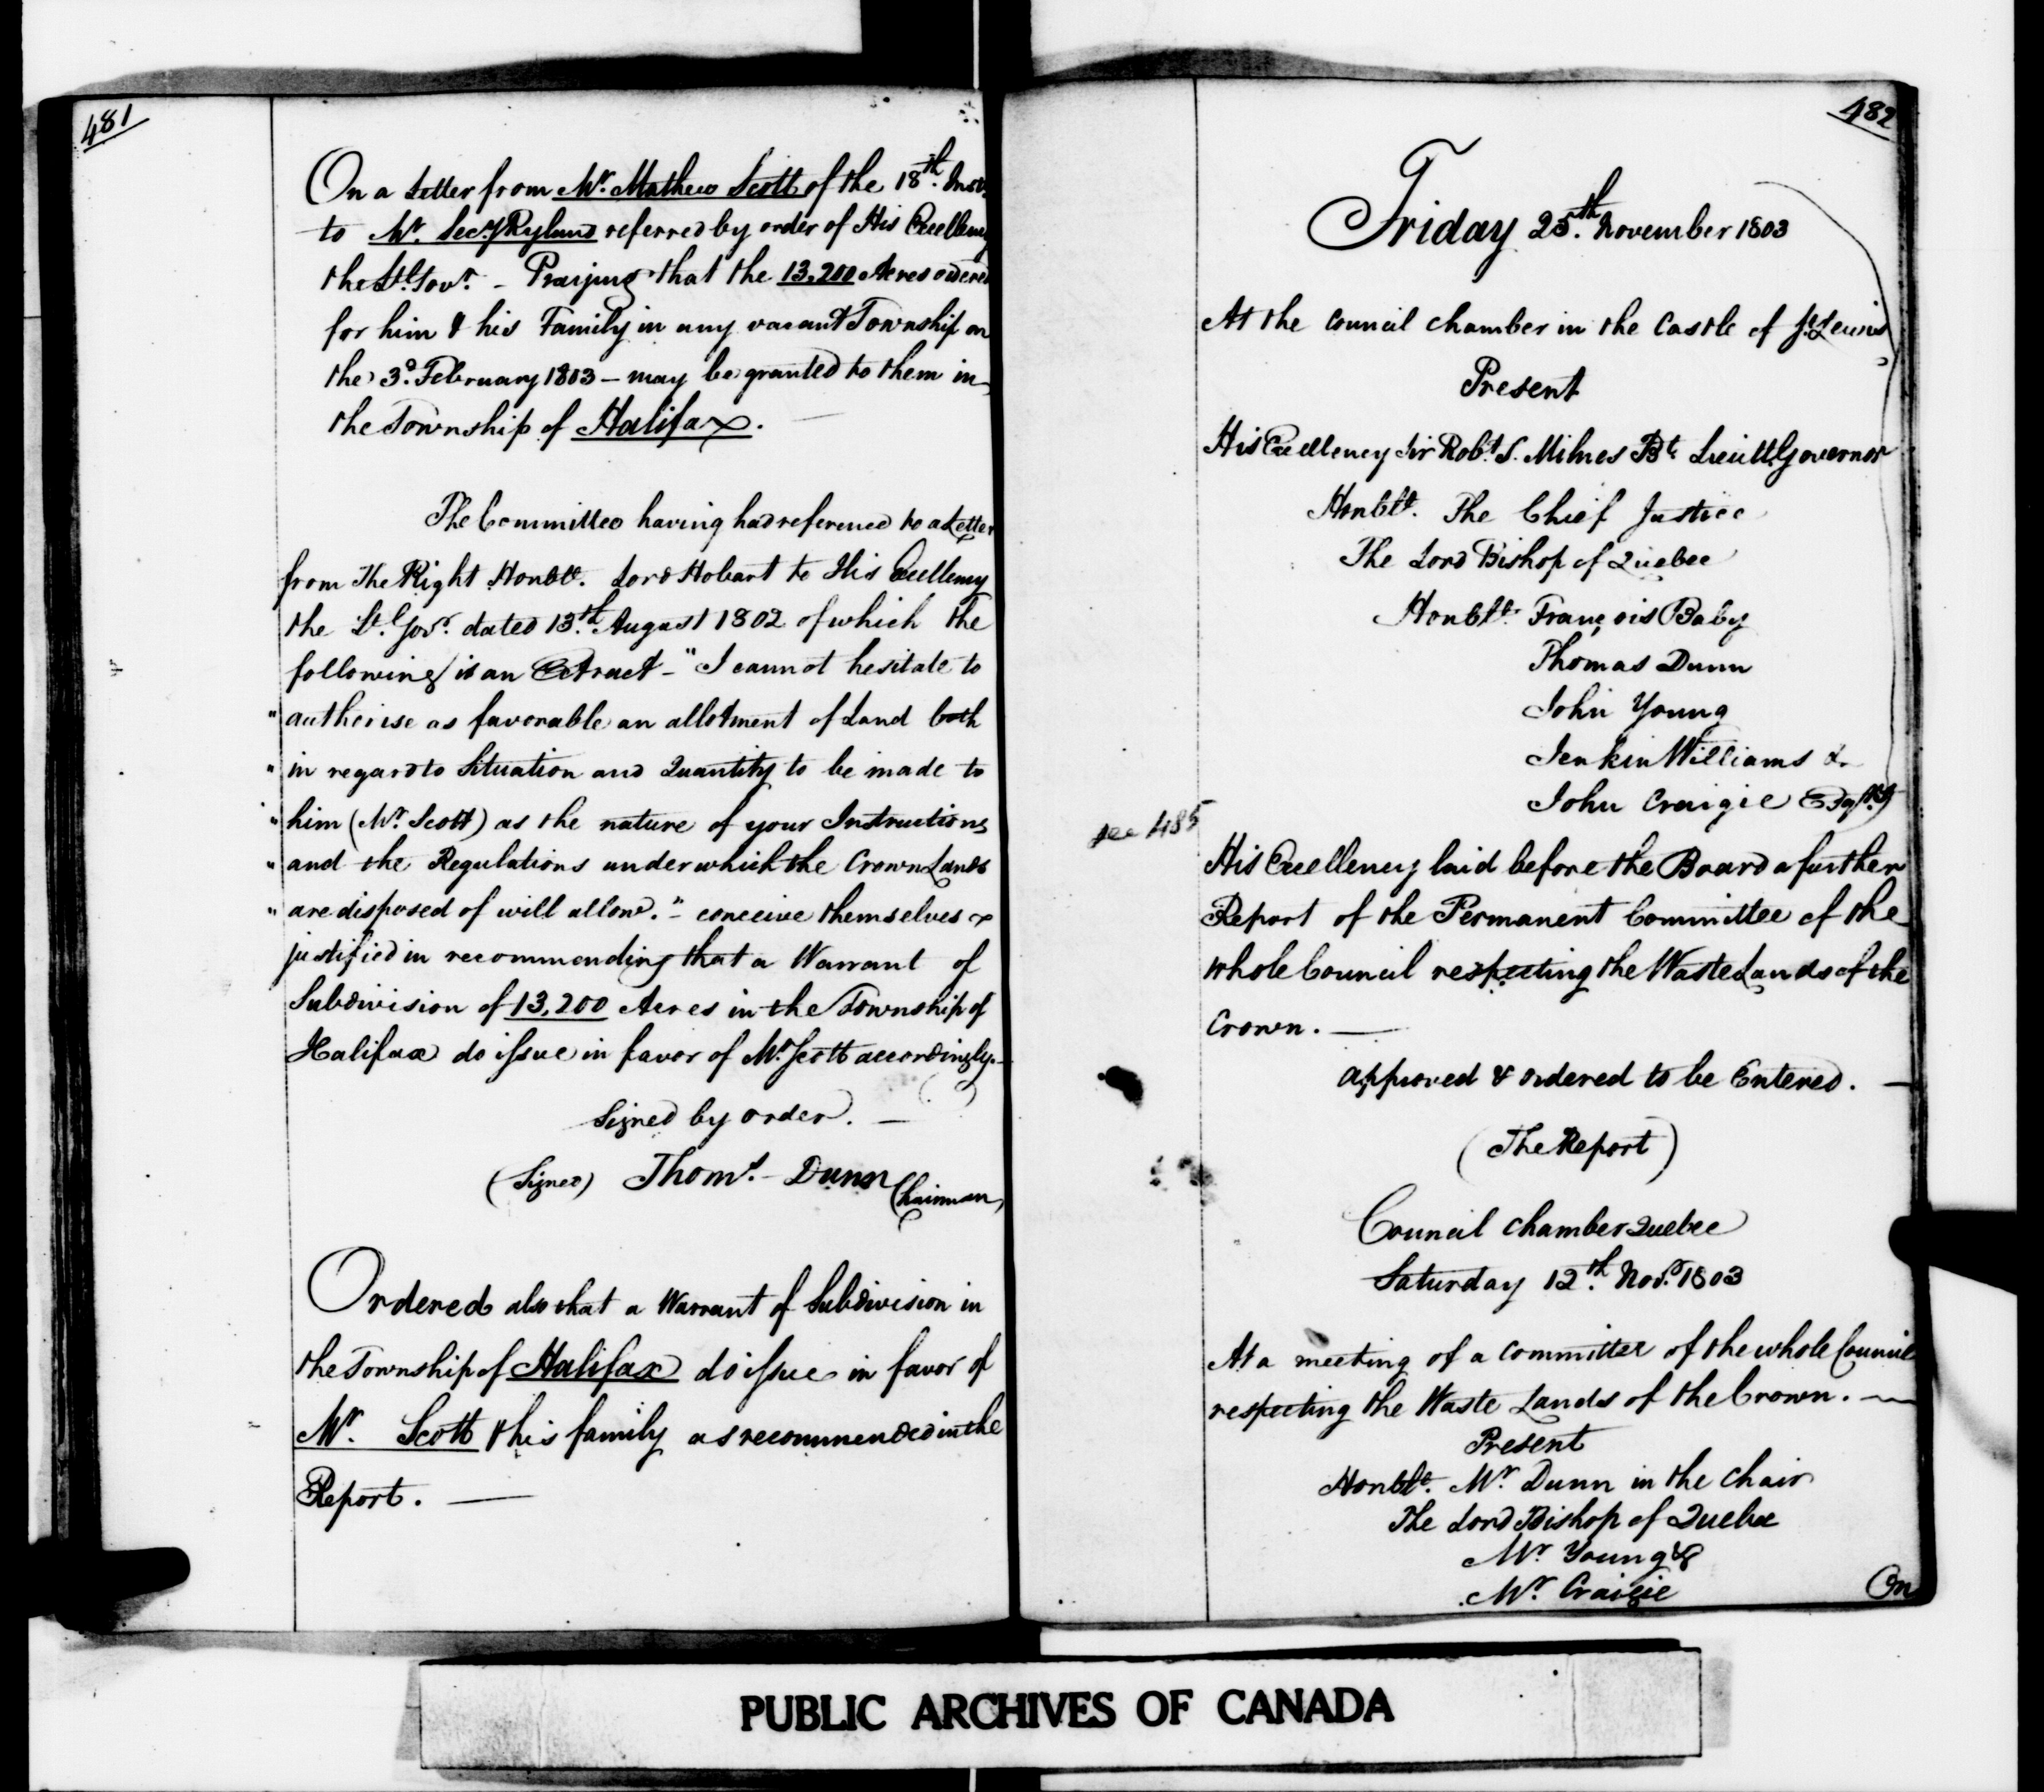 481
On a Letter from Mr. Mathew Scott of the 18th. Inst.
to Mr. Secy Ryland referred by order of His Excellency
the Lt. Govr. - Praying that the 13,200 Acres ordered
for him & his Family in any vacant Township on
the 3d. February 1803 - may be granted to them in
the Township of Halifax.
The Committee having had reference to a Letter
from The Right Honble. Lord Hobart to His Excellency
the Lt. Govr. dated 13th. August 1802 of which the
following is an Extract - "I cannot hesitate to
" authorise as favorable an allotment of Land both
" in regard to Situation and Quantity to be made to
" him (Mr. Scott) as the nature of your Instructions
" and the Regulations under which the Crown Lands
" are disposed of will allow." - conceive themselves
justified in recommending that a Warrant of
Subdivision of 13,200 Acres in the Township of
Halifax do issue in favor of Mr. Scott accordingly. -
Signed by order. -
(Signed) Thoms. Dunn Chairman
Ordered also that a Warrant of Subdivision in
the Township of Halifax do issue in favor of
Mr. Scott & his family as recommended in the
Report. -
482
Friday 25th. November 1803
At the Council Chamber in the Castle of St. Lewis
Present
His Excellency Sir Robt. S. Milnes Bt. Lieutt. Governor
Honble. The Chief Justice
The Lord Bishop of Quebec
Honble. François Baby
Thomas Dunn
John Young
Jenkin Williams &
John Craigie Esqrs.
see 485
His Excellency laid before the Board a further
Report of the Permanent Committee of the
whole Council respecting the Waste Lands of the
Crown. -
approved & ordered to be Entered. -
(The Report)
Council Chamber Quebec
Saturday 12th. Novr. 1803
At a meeting of a Committee of the whole Council
respecting the Waste Lands of the Crown. -
Present
Honble. Mr. Dunn in the Chair
The Lord Bishop of Quebec
Mr. Young &
Mr. Craigie
On
PUBLIC ARCHIVES OF CANADA